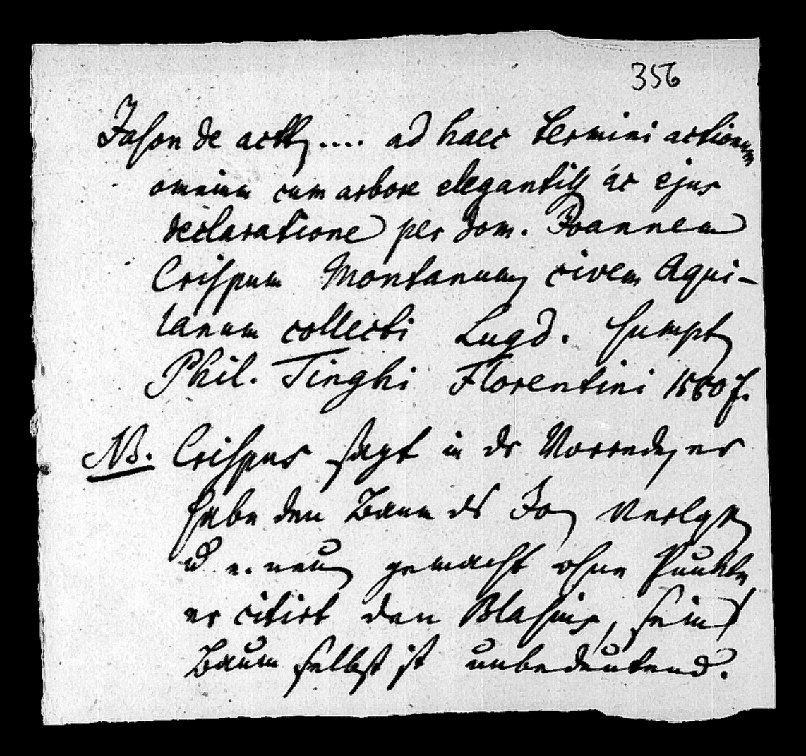 356
Jason de actt .... ad haec termini actionum
omnium cum arbore elegantiss ac ejus
declaratione per dom. Joannem
Crispum Montanum civem Aqui-
lanum collecti Lugd. sumpt
Phil. Tinghi Florentini f.
NB. Crispus sagt in dr Vorrede, er
habe den Baum ds Jo
u e. neuen gemacht ohne Punkte,
er citirt den Blasius, sein
Baum selbst ist unbedeutend.